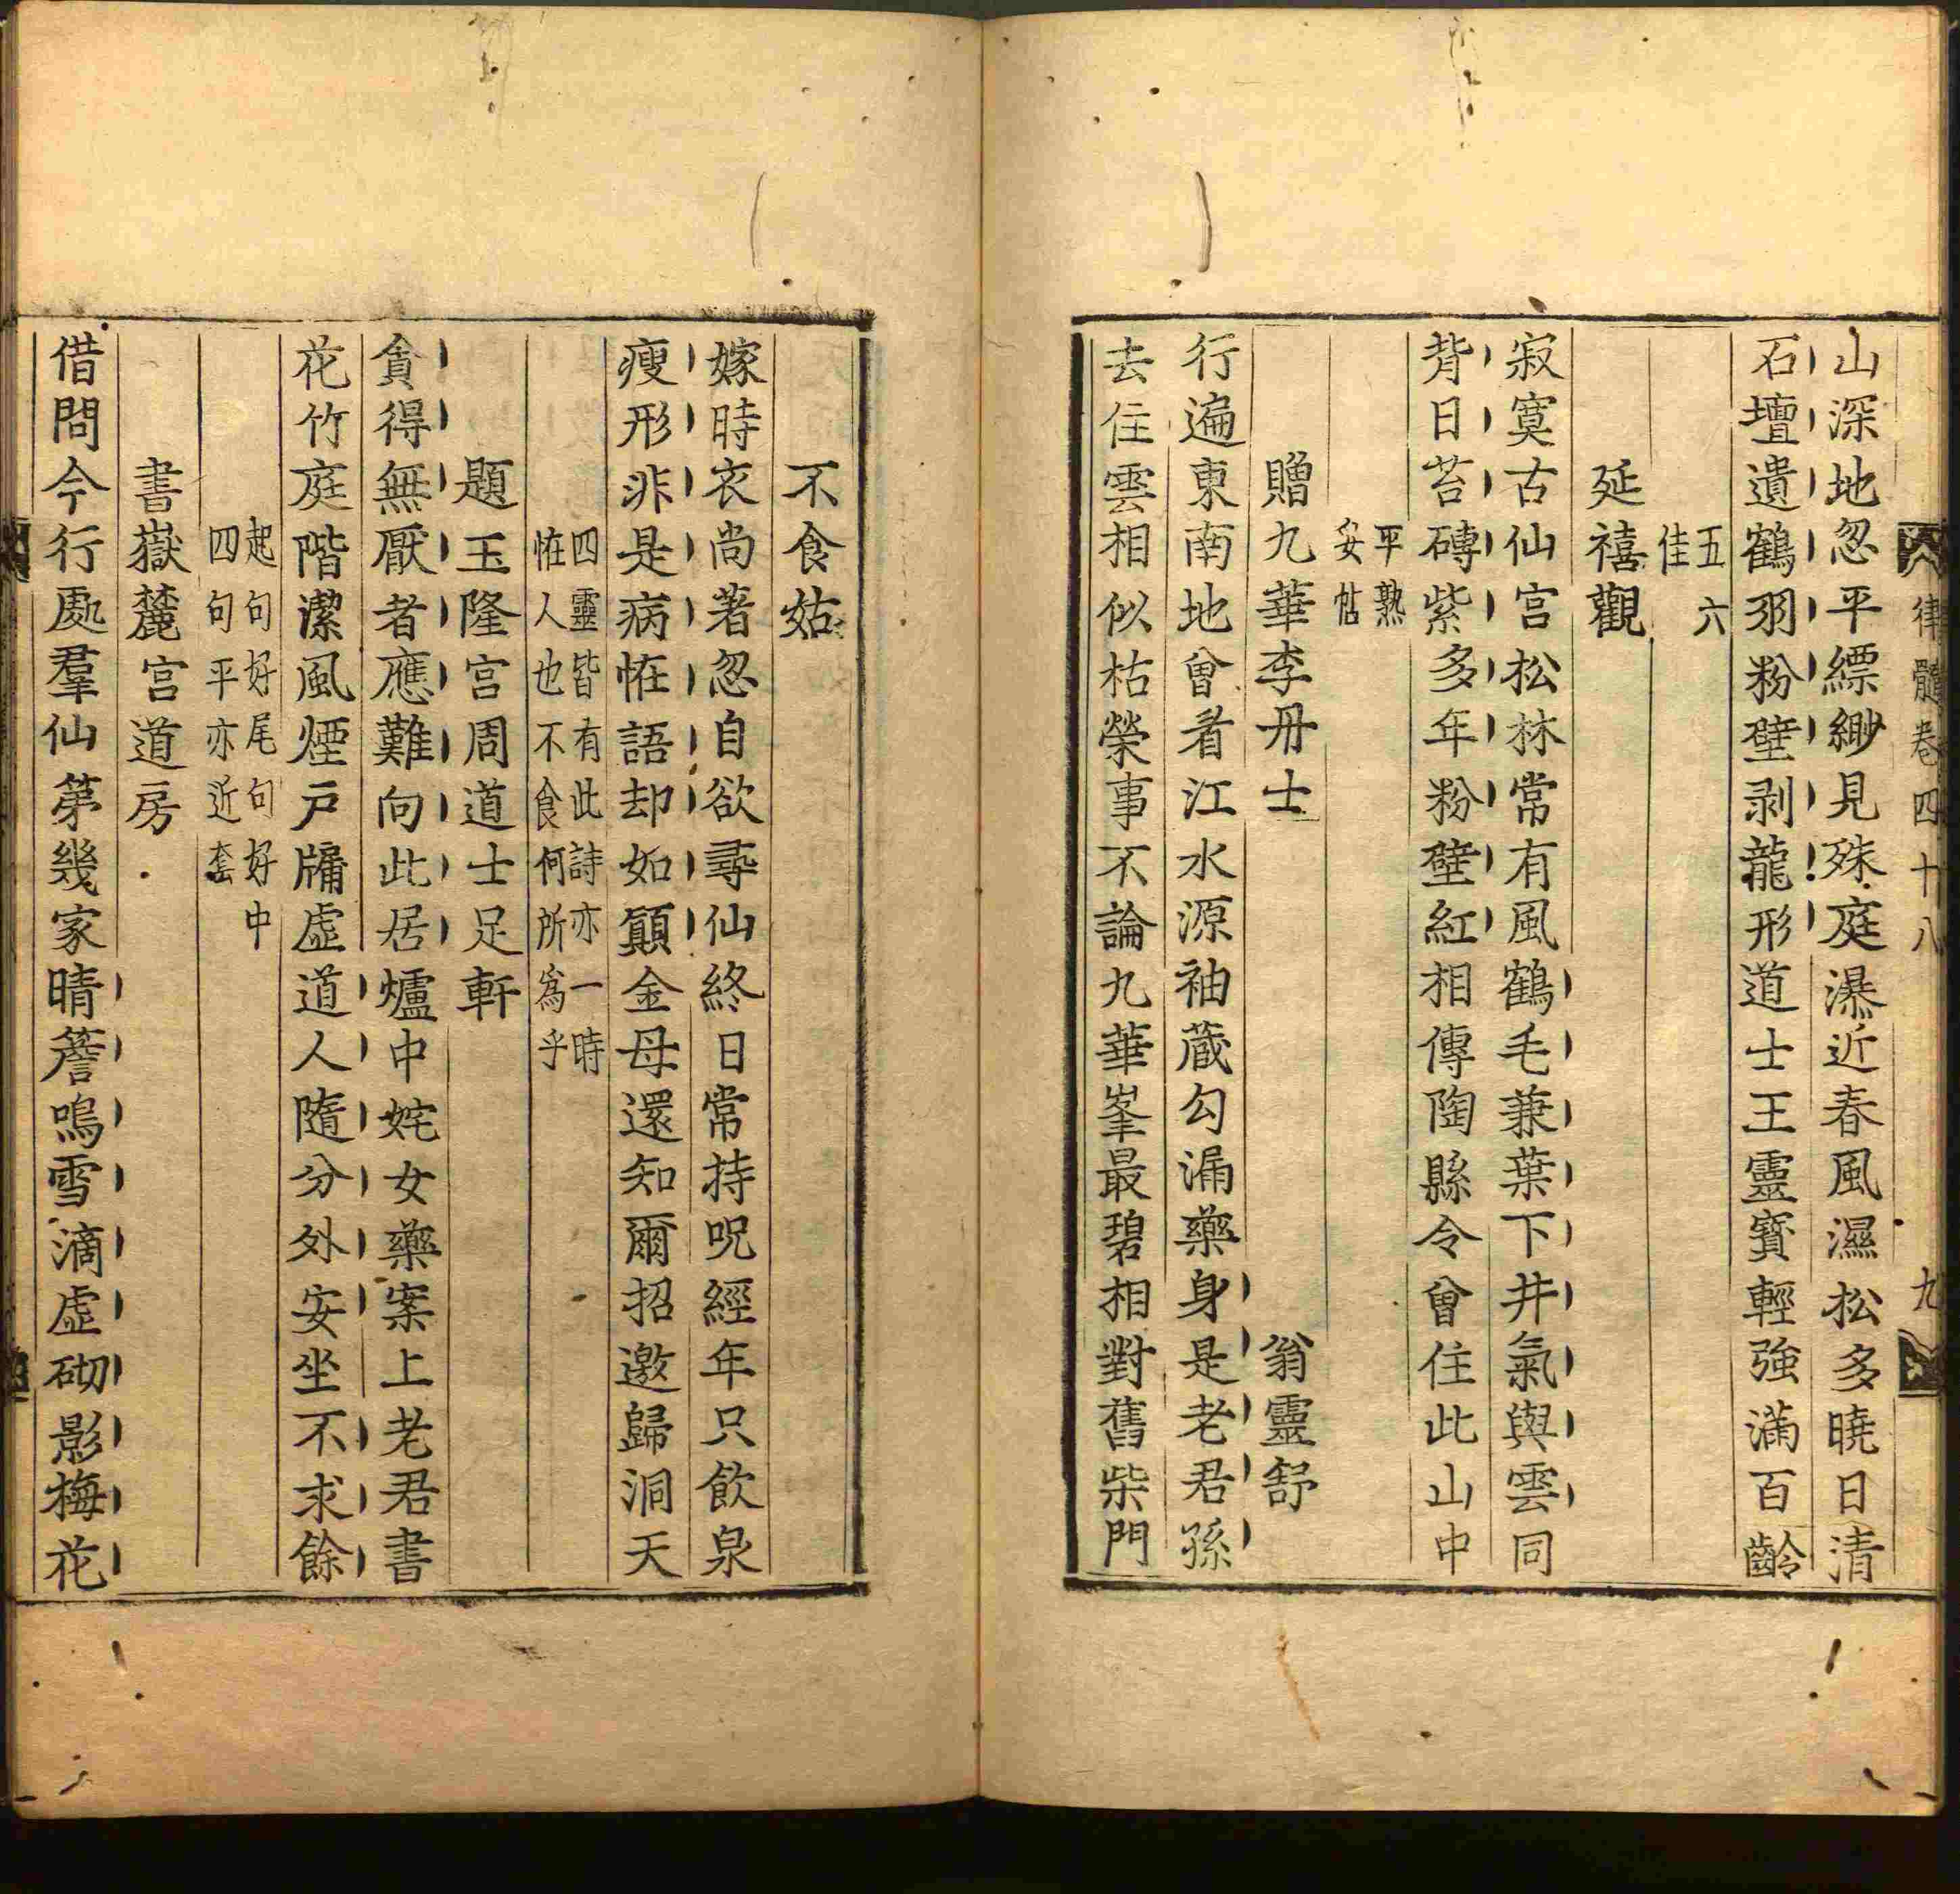 律髓卷四十八 九
山深地忽平縹緲見殊庭瀑近春風濕松多曉日清
石壇遺鶴羽粉壁剥龍形道士王靈寳輕強滿百齡
五六
佳
延禧觀
寂寞古仙宫松林常有風鶴毛兼葉下井氣與雲同
背日苔磚紫多年粉壁紅相傳陶縣令曾住此山中
平熟
妥帖
贈九華李丹士 翁靈舒
行遍東南地曾看江水源袖蔵勾漏藥身是老君孫
去住雲相似枯榮事不論九華峯最碧相對舊柴門
不食姑
嫁時衣尚著忽自欲尋仙終日常持呪經年只飲泉
瘦形非是病恠語却如顛金母還知爾招邀歸洞天
四靈皆有此詩亦一時
恠人也不食何所為乎
題玉隆宫周道士足軒
貪得無厭者應難向此居爐中姹女藥案上老君書
花竹庭階潔風煙戸牖虚道人隨分外安坐不求餘
起句好尾句好中
四句平亦近套
書嶽麓宫道房
借問今行處羣仙第幾家晴簷鳴雪滴虚砌影梅花